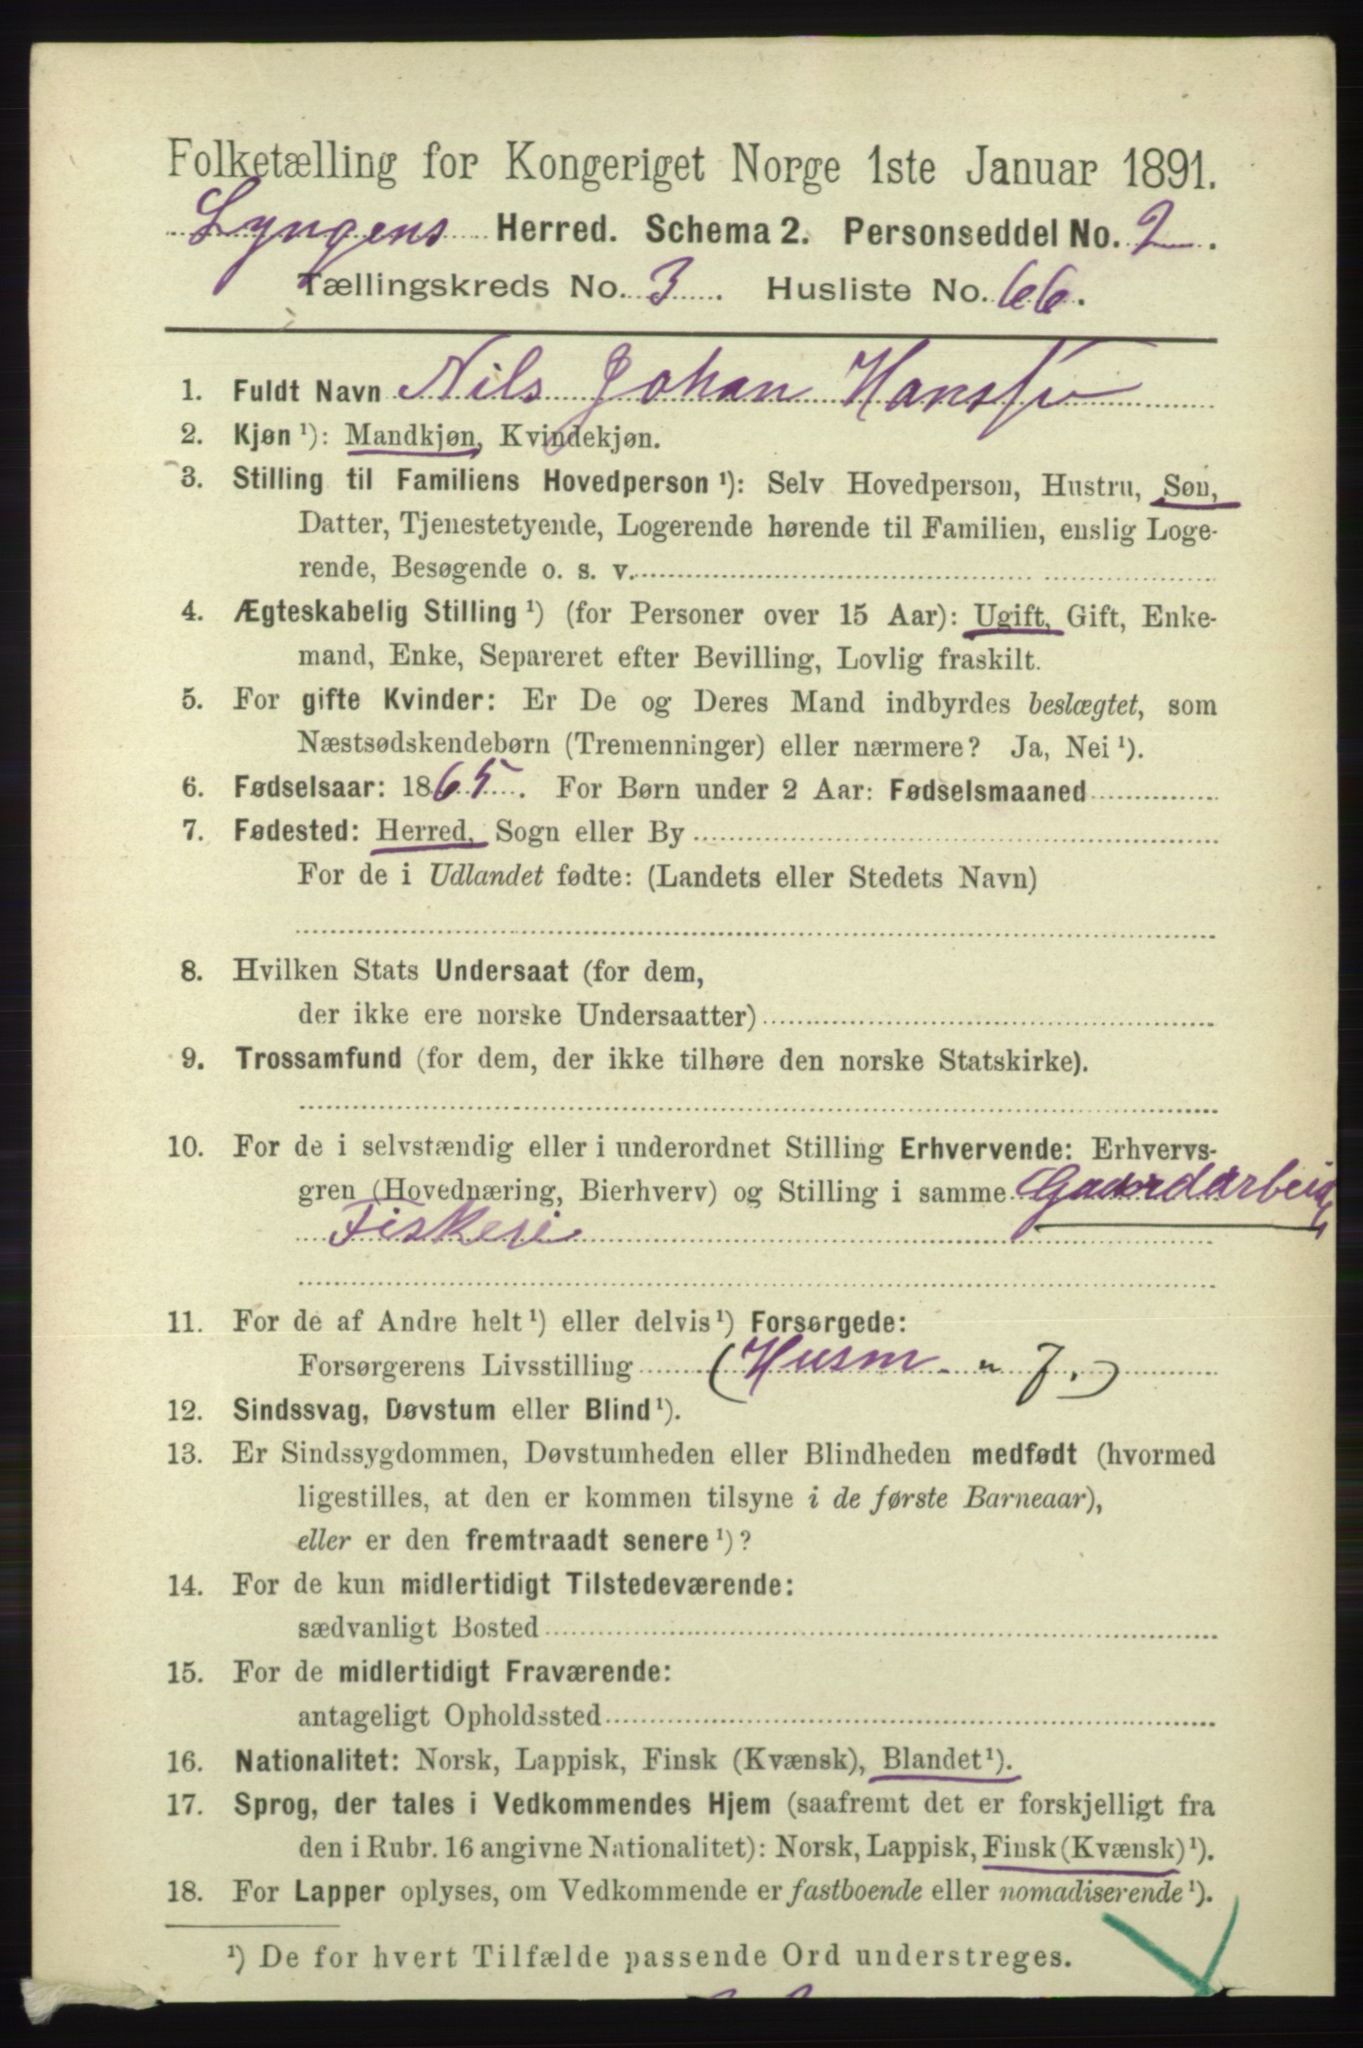 Folketælling for Kongeriget Norge 1ste Januar 1891.
Lyngens Herred. Schema 2. Personseddel No. 2.
Tællingskreds No. 3. Husliste No. 66.
1. Fuldt Navn Nils Johan Hans
2. Kjøn ¹): Mandkjøn, Kvindekjøn.
3. Stilling til Familiens Hovedperson ¹): Selv Hovedperson, Hustru, Søn,
Datter, Tjenestetyende, Logerende hørende til Familien, enslig Loge-
rende, Besøgende o. s. v.
4. Ægteskabelig Stilling ¹) (for Personer over 15 Aar): Ugift, Gift, Enke-
mand, Enke, Separeret efter Bevilling, Lovlig fraskilt.
5. For gifte Kvinder: Er De og Deres Mand indbyrdes beslægtet, som
Næstsødskendebørn (Tremenninger) eller nærmere? Ja, Nei ¹).
6. Fødselsaar: 1865. For Børn under 2 Aar: Fødselsmaaned
7. Fødested: Herred, Sogn eller By
For de i Udlandet fødte: (Landets eller Stedets Navn)
8. Hvilken Stats Undersaat (for dem,
der ikke ere norske Undersaatter)
9. Trossamfund (for dem, der ikke tilhøre den norske Statskirke).
10. For de i selvstændig eller i underordnet Stilling Erhvervende: Erhvervs-
gren (Hovednæring, Bierhverv) og Stilling i samme Gaardarbeid
Fiskeri
11. For de af Andre helt ¹) eller delvis ¹) Forsørgede:
Forsørgerens Livsstilling (Husm. u J.)
12. Sindssvag, Døvstum eller Blind ¹).
13. Er Sindssygdommen, Døvstumheden eller Blindheden medfødt (hvormed
ligestilles, at den er kommen tilsyne i de første Barneaar),
eller er den fremtraadt senere ¹)?
14. For de kun midlertidigt Tilstedeværende:
sædvanligt Bosted
15. For de midlertidigt Fraværende:
antageligt Opholdssted
16. Nationalitet: Norsk, Lappisk, Finsk (Kvænsk), Blandet ¹).
17. Sprog, der tales i Vedkommendes Hjem (saafremt det er forskjelligt fra
den i Rubr. 16 angivne Nationalitet): Norsk, Lappisk, Finsk (Kvænsk) ¹).
18. For Lapper oplyses, om Vedkommende er fastboende eller nomadiserende ¹).
¹) De for hvert Tilfælde passende Ord understreges.